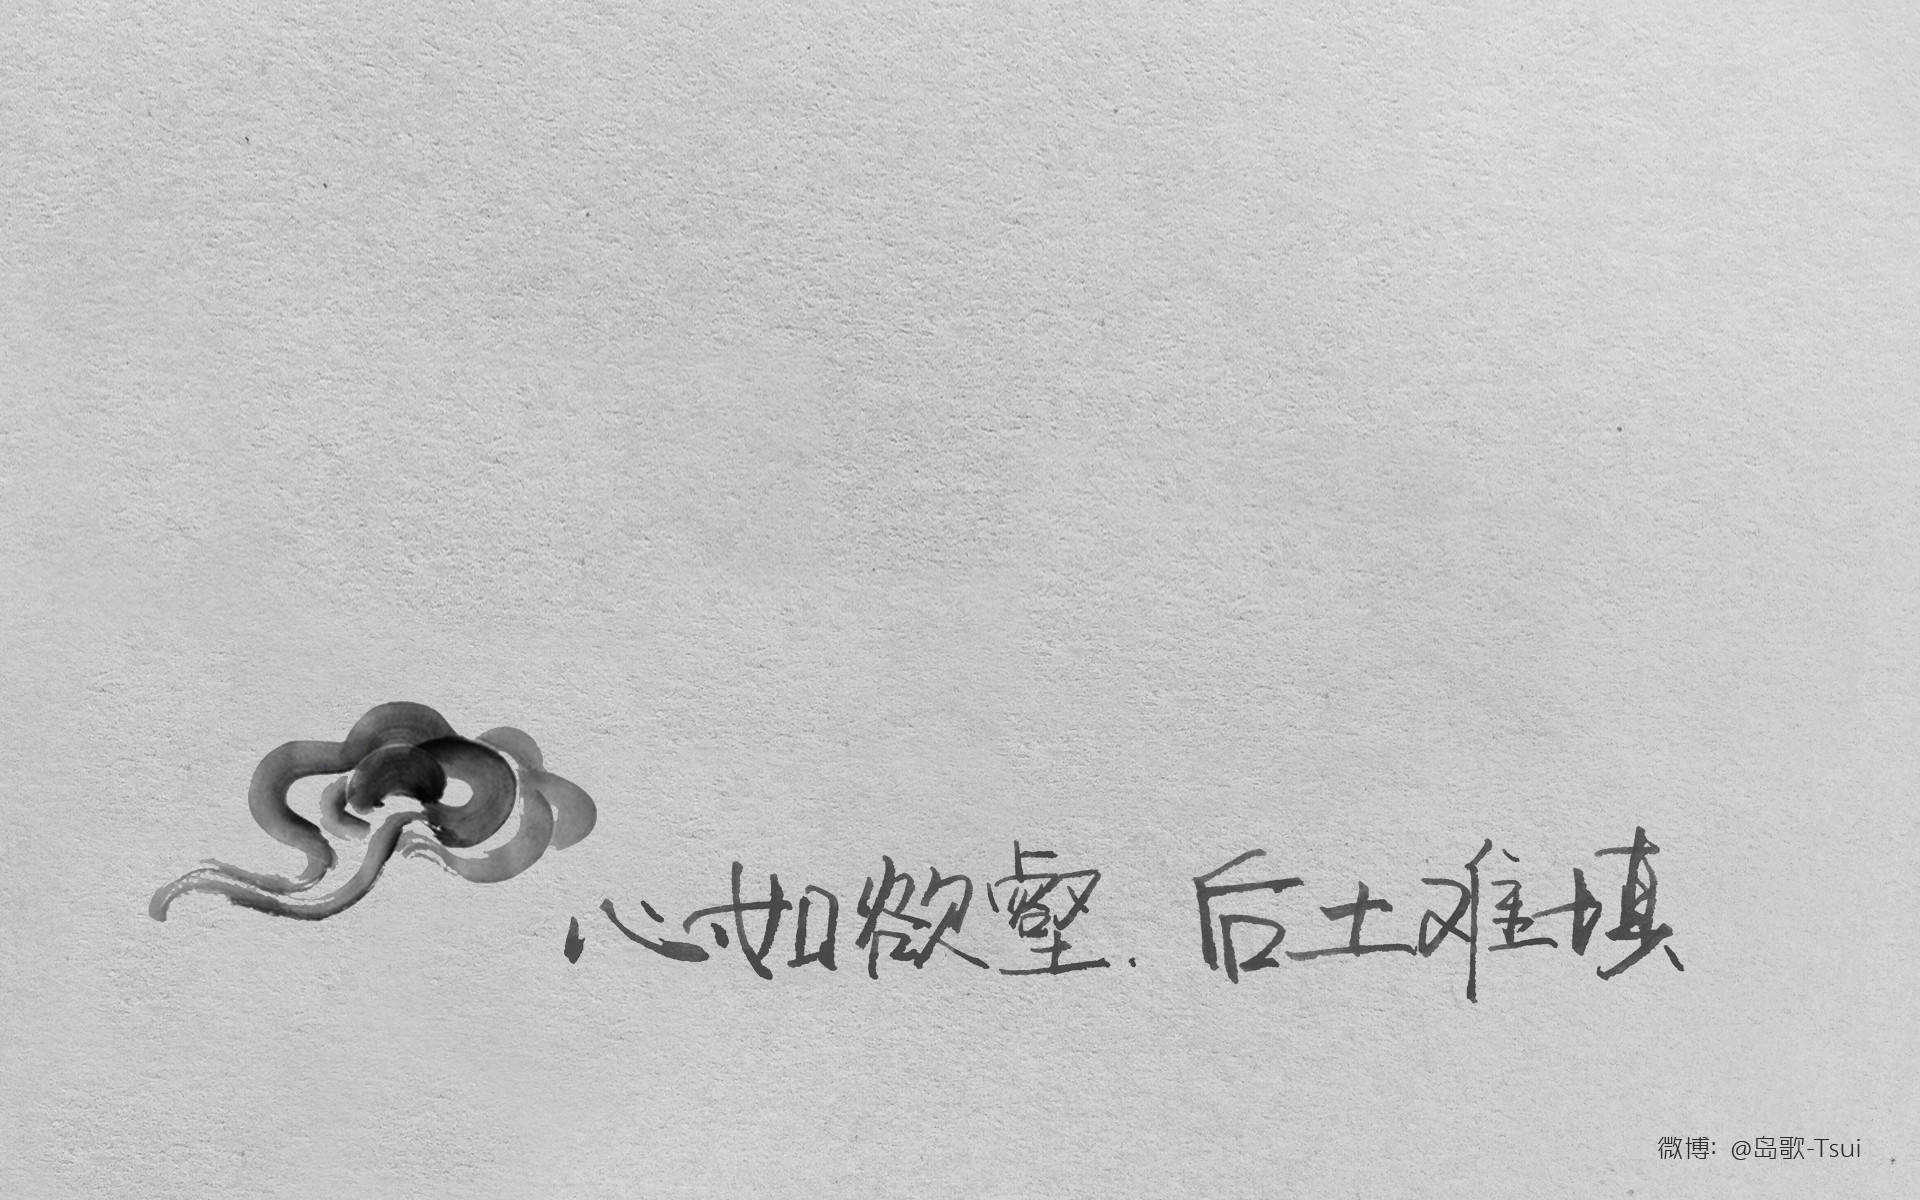 心如欲壑.后土难填
微博: @岛歌-Tsui